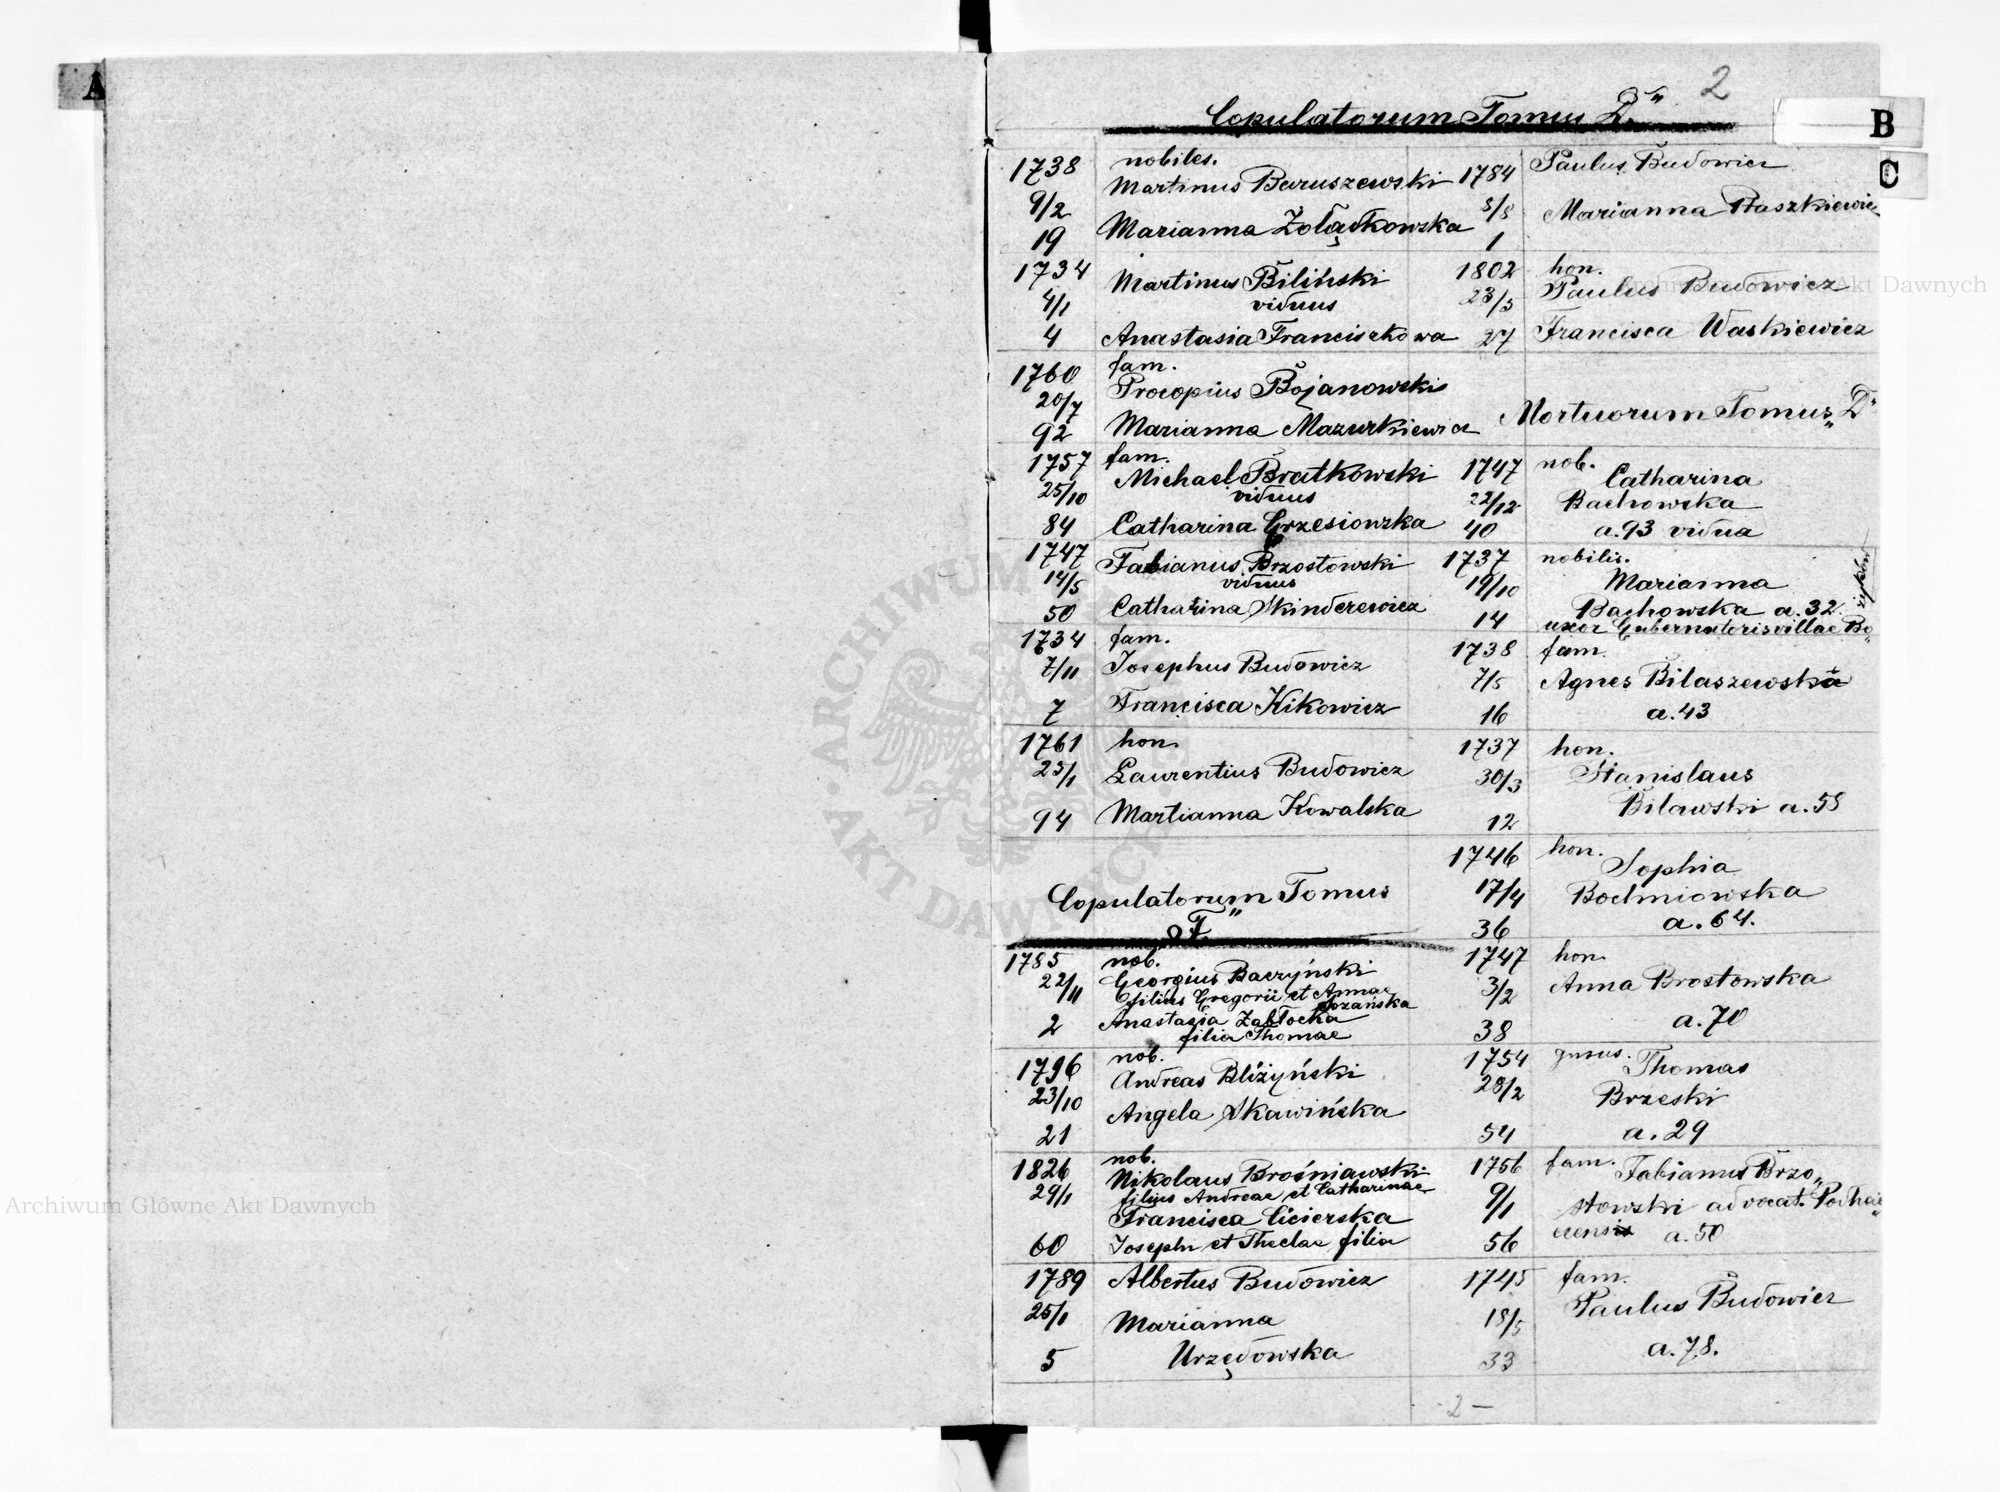 A
2
Copulatorum Tomus D.
B
C
1738
9/2
19
nobiles.
Martinus Baruszewski
Marianna Żołądkowska
1734
4/1
4
Martinus Biliński
viduus
Anastasia Franciszkowa
1760
20/7
92
fam.
Procopius Bojanowski
Marianna Mazurkiewicz
1757
25/10
84
fam.
Michael Bratkowski
viduus
Catharina Grzesiowska
1747
14/5
50
Fabianus Brzostowski
viduus
Catharina Skinderewicz
1734
7/11
7
fam.
Josephus Budowicz
Francisca Kikowicz
1761
25/1
94
hon.
Laurentius Budowicz
Martianna Kowalska
Copulatorum Tomus
F.
1785
22/11
2
nob.
Georgius Baczyński
filius Gregorii et Annae
Anastazia Zabłocka
filia Thomae
1796
23/10
21
nob.
Andreas Bliżyński
Angela Skawińska
1826
29/1
60
nob.
Nikolaus Brośniawski
filius Andreae et Catharinae
Francisca Cicierska
Josephi et Theclae filia
1789
25/1
5
Albertus Budowicz
Marianna
Urzędowska
1784
8/8
1
Paulus Budowicz
Marianna Ptaszkiewic
1802
23/5
27
hon.
Paulus Budowicz
Francisca Waskiewicz
Mortuorum Tomus „D"
1747
22/12
40
nob.
Catharina
Bachowska
a. 93 vidua
1737
19/10
14
nobilis.
Marianna
Bachowska a. 32.
uxor Gubernatoris villae Bo„
1738
7/5
16
fam.
Agnes Bilaszewska
a. 43
1737
30/3
12
hon.
Stanislaus
Bilawski a. 58
1746
17/4
36
hon.
Sophia
Bochniowska
a. 64.
1747
3/2
38
hon.
Anna Brostowska
a. 70
1754
28/2
54
Thomas
Brzeski
a. 29
1756
9/1
56
fam.
Fabianus Brzo„
stowski advocat. Podhai„
censis a. 50
1745
18/5
33
fam.
Paulus Budowicz
a. 78.
2 –
ARCHIWUM GŁÓWNE AKT DAWNYCH
Archiwum Główne Akt Dawnych
Archiwum Główne Akt Dawnych